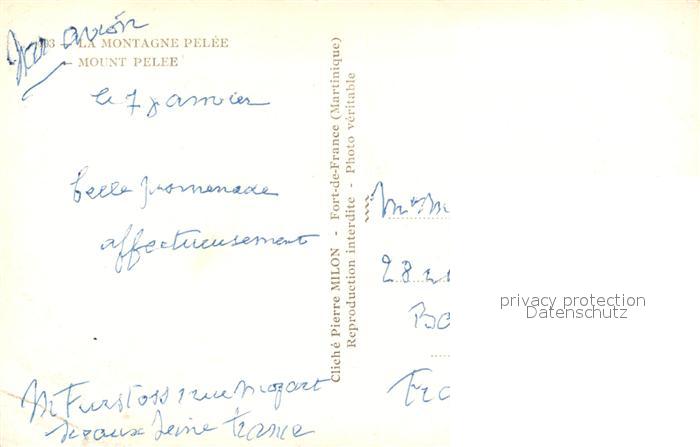 Par avion
03 - LA MONTAGNE PELÉE
- MOUNT PELEE
le 7 janvier
belle promenade
affectueusement
Cliché Pierre MILON - Fort-de-France (Martinique)
Reproduction interdite - Photo véritable
28
privacy protection
Datenschutz
rue Mozart
Sceaux Seine France